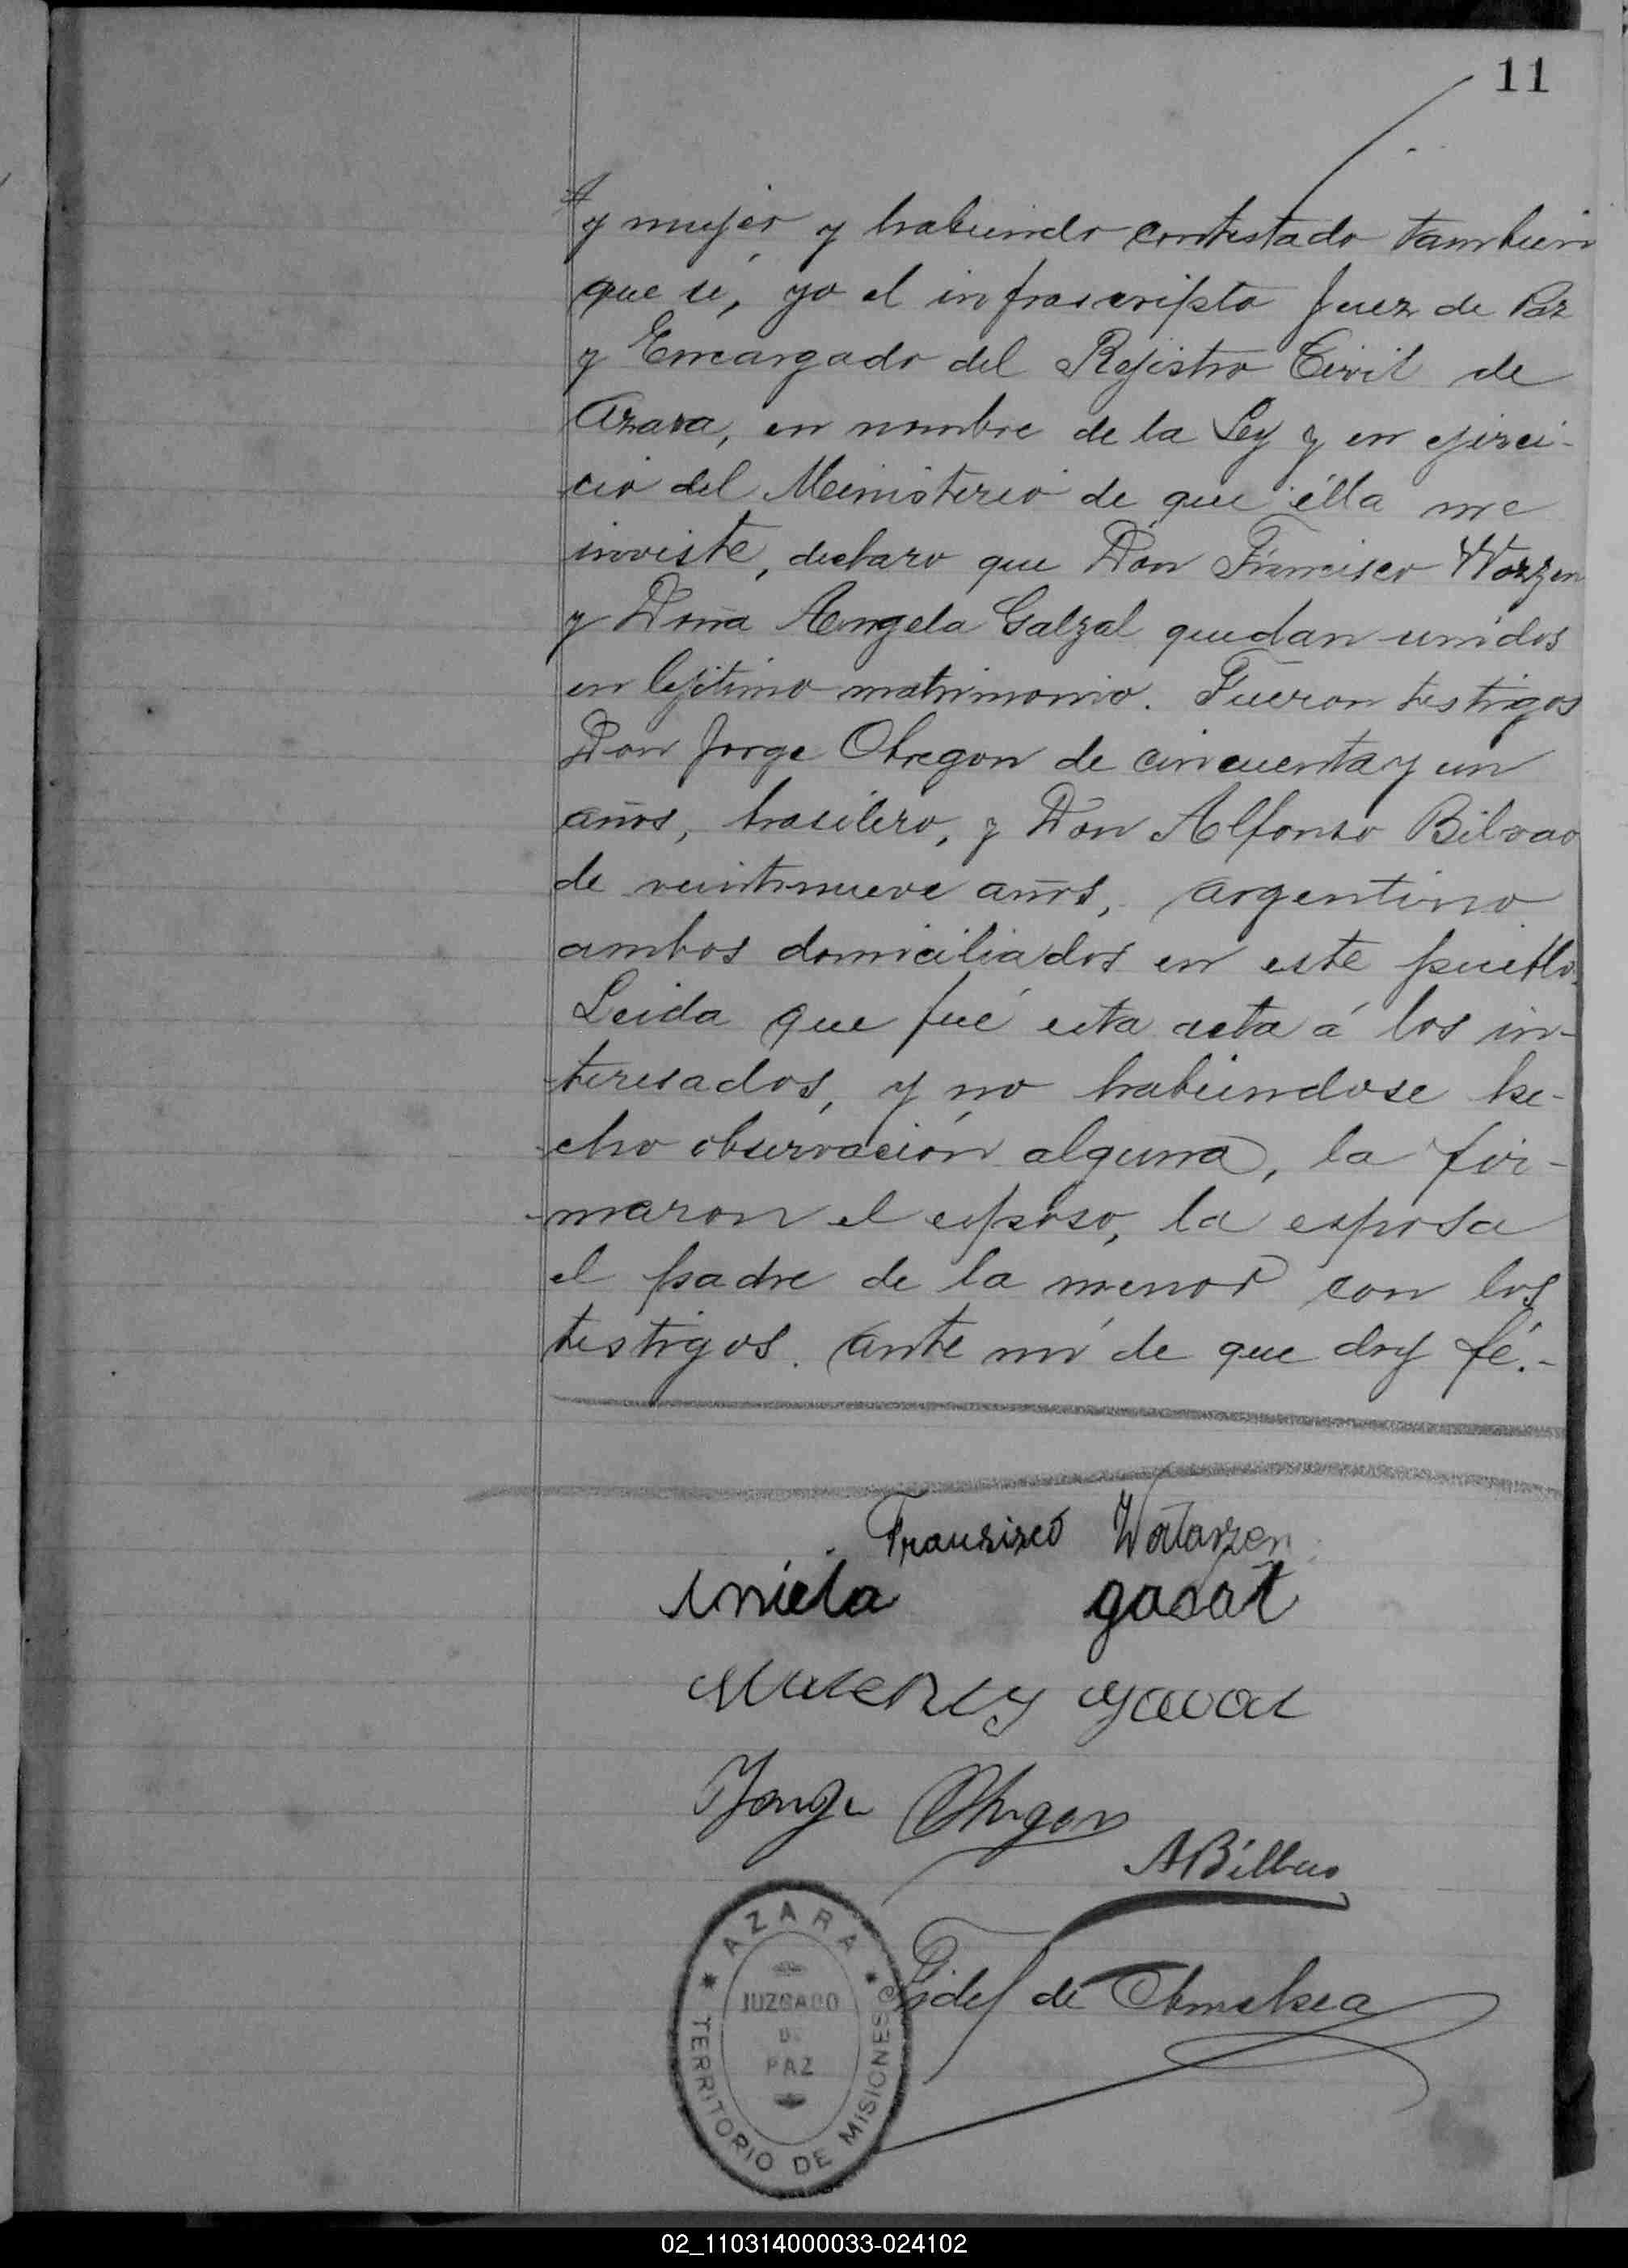 11
y mujer y habiendo contestado tambien
que sí, yo el infrascripto Juez de Paz
y Encargado del Rejistro Civil de
Azara, en nombre de la Ley y en ejerci-
cio del Ministerio de que élla me
inviste, declaro que Don Francisco
y Doña Angela Galzal quedan unidos
en lejítimo matrimonio. Fueron testigos
Don Jorge Obregon de cincuenta y un
años, brasilero, y Don Alfonso Bilvao
de veintinueve años, argentino
ambos domiciliados en este pueblo.
Leida que fué esta acta á los in-
teresados, y no habiendose he-
cho observación alguna, la fir-
maron el esposo, la esposa
el padre de la menor con los
testigos. Ante mí de que doy fé.-
Aniela
Jorge Obregon
ABilbao
Fidel de
AZARA
JUZGADO
DE
PAZ
TERRITORIO DE MISIONES
02_110314000033-024102